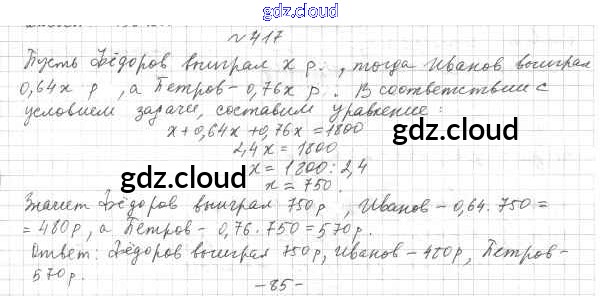 gdz.cloud
№417
Пусть Фёдоров выиграл x р., тогда Иванов выиграл
0,64x р, а Петров - 0,76x р. В соответствии с
условием задачи, составим уравнение:
x + 0,64x + 0,76x = 1800
gdz.cloud
2,4x = 1800
x = 1800 : 2,4
gdz.cloud
x = 750.
Значит Фёдоров выиграл 750 р, Иванов - 0,64 · 750 =
= 480 р, а Петров - 0,76 · 750 = 570 р.
Ответ: Фёдоров выиграл 750 р, Иванов - 480 р, Петров -
570 р.
gdz.cloud
- 85 -